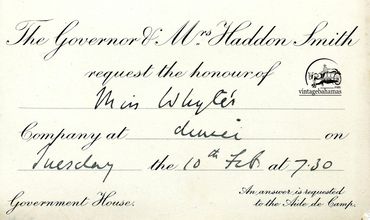 The Governor & Mrs Haddon Smith
request the honour of
vintagebahamas
Miss Whyte's
Company at dinner on
Tuesday the 10th Feb. at 7.30
Government House.
An answer is requested
to the Aide de Camp.